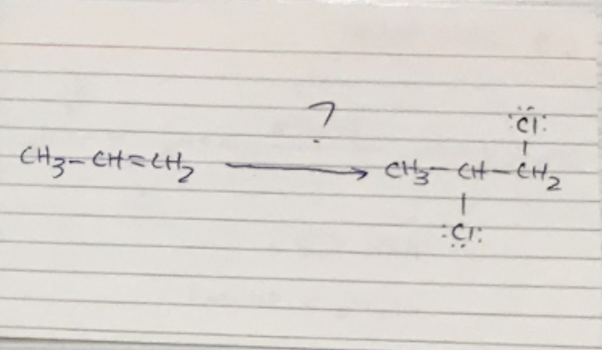 ?
:Cl:
CH3-CH=CH2 → CH3-CH-CH2
:Cl: